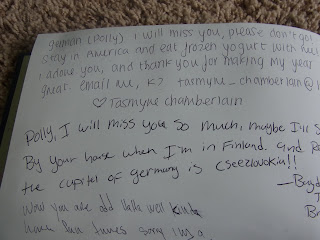 german (Polly) I will miss you, please don't go!
stay in America and eat frozen yogurt with me!
i adore you, and thank you for making my year
great. email me, K? tasmyne_chamberlain@
♡ Tasmyne Chamberlain
Polly, I will miss you so much, maybe I'll S
By your house when I'm in Finland. and
the capitel of germany is cseezlovokia!!
you are odd well kinda
fun times sorry im a